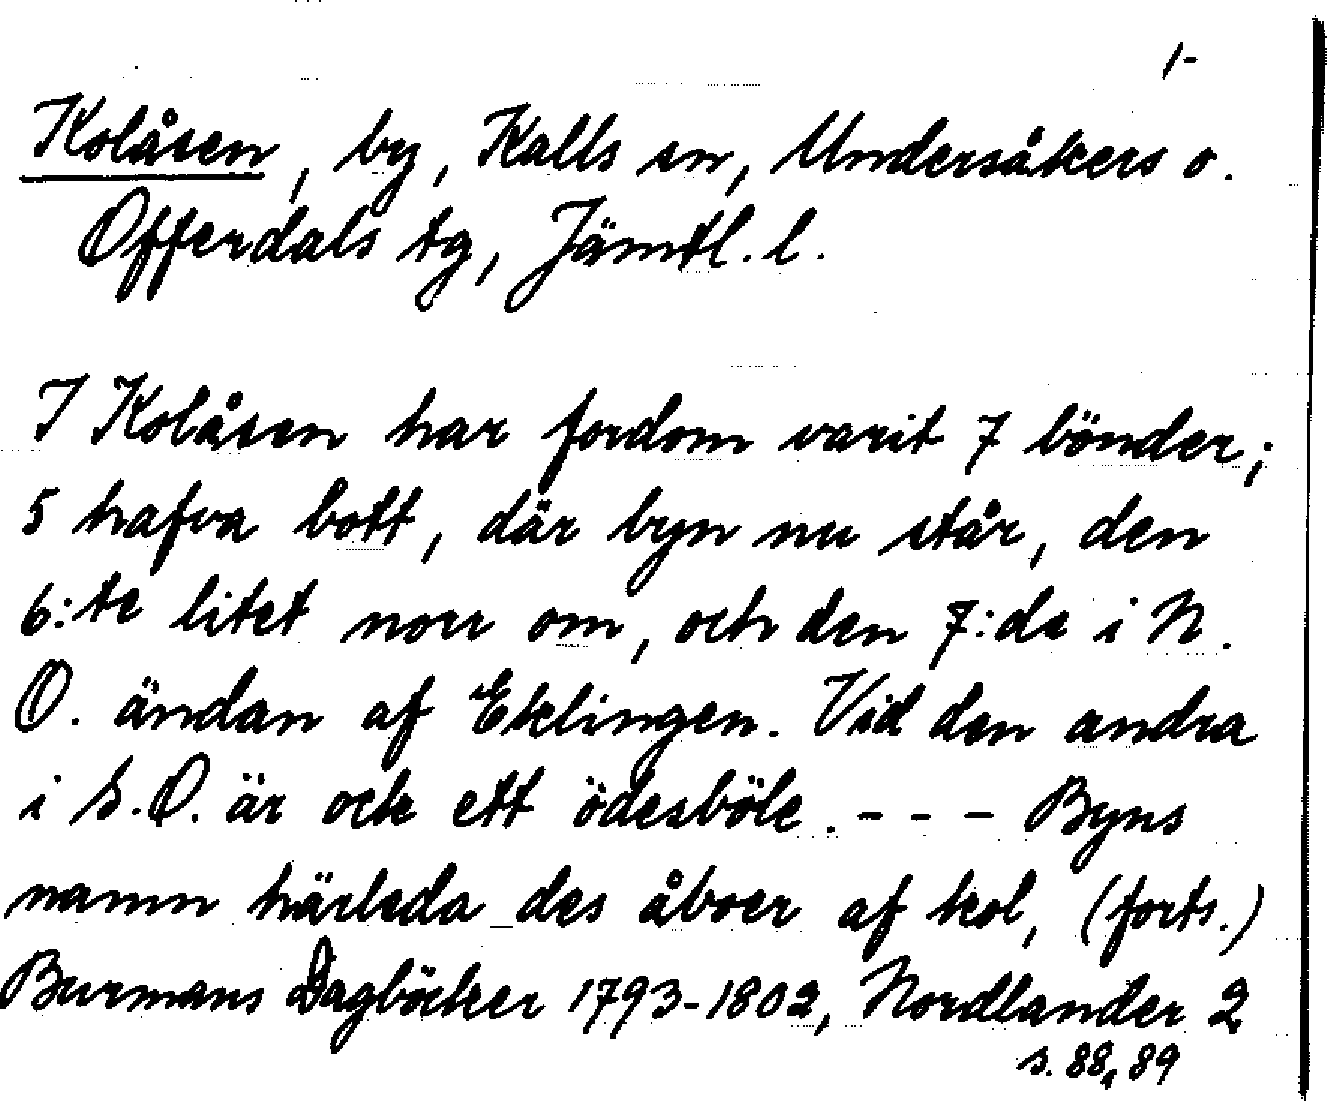 1-
Kolåsen, by, Kalls sn, Undersåkers o.
Offerdals tg, Jämtl. l.
I Kolåsen har fordom varit 7 bönder;
5 hafva bott, där byn nu står, den
6:te litet norr om, och den 7:de i N.
O. ändan af Eklingen. Vid den andra
i S.O. är ock ett ödesböle. - - - Byns
namn härleda des åboer af kol, (forts.)
Burmans Dagböcker 1793-1802, Nordlander 2
s. 88, 89